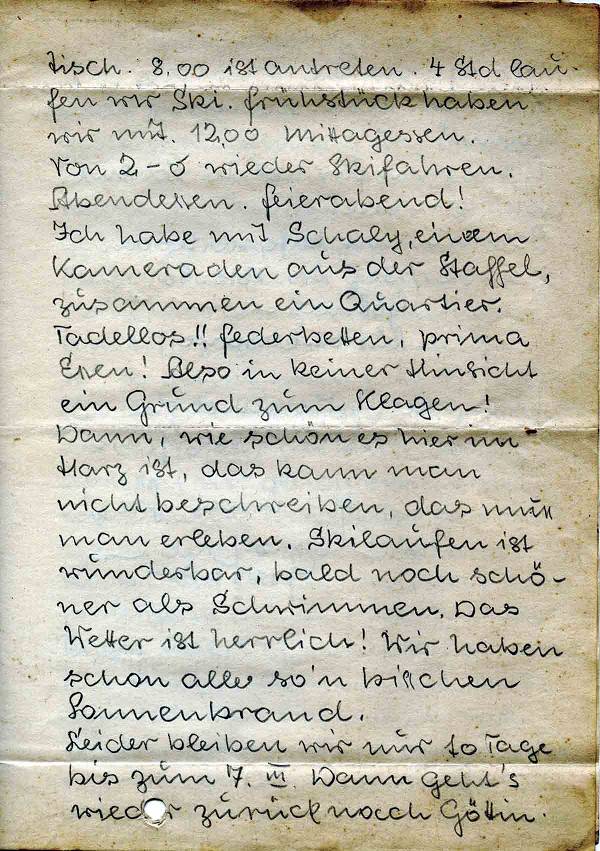 tisch. 8.00 ist antreten. 4 Std lau-
fen wir Ski. frühstück haben
wir mit. 12.00 Mittagessen.
Von 2-6 wieder Skifahren.
Abendessen. feierabend!
Ich habe mit Schaly, einem
Kameraden aus der Staffel,
zusammen ein Quartier.
Tadellos!! federbetten, prima
Essen! Also in keiner Hinsicht
ein Grund zum Klagen!
Dann, wie schön es hier im
Harz ist, das kann man
nicht beschreiben, das muss
man erleben. Skilaufen ist
wunderbar, bald noch schö-
ner als Schwimmen. Das
Wetter ist herrlich! Wir haben
schon alle so'n bisschen
Sonnenbrand.
Leider bleiben wir nur 10 Tage
bis zum 7. III. Dann geht's
wieder zurück nach Göttin-